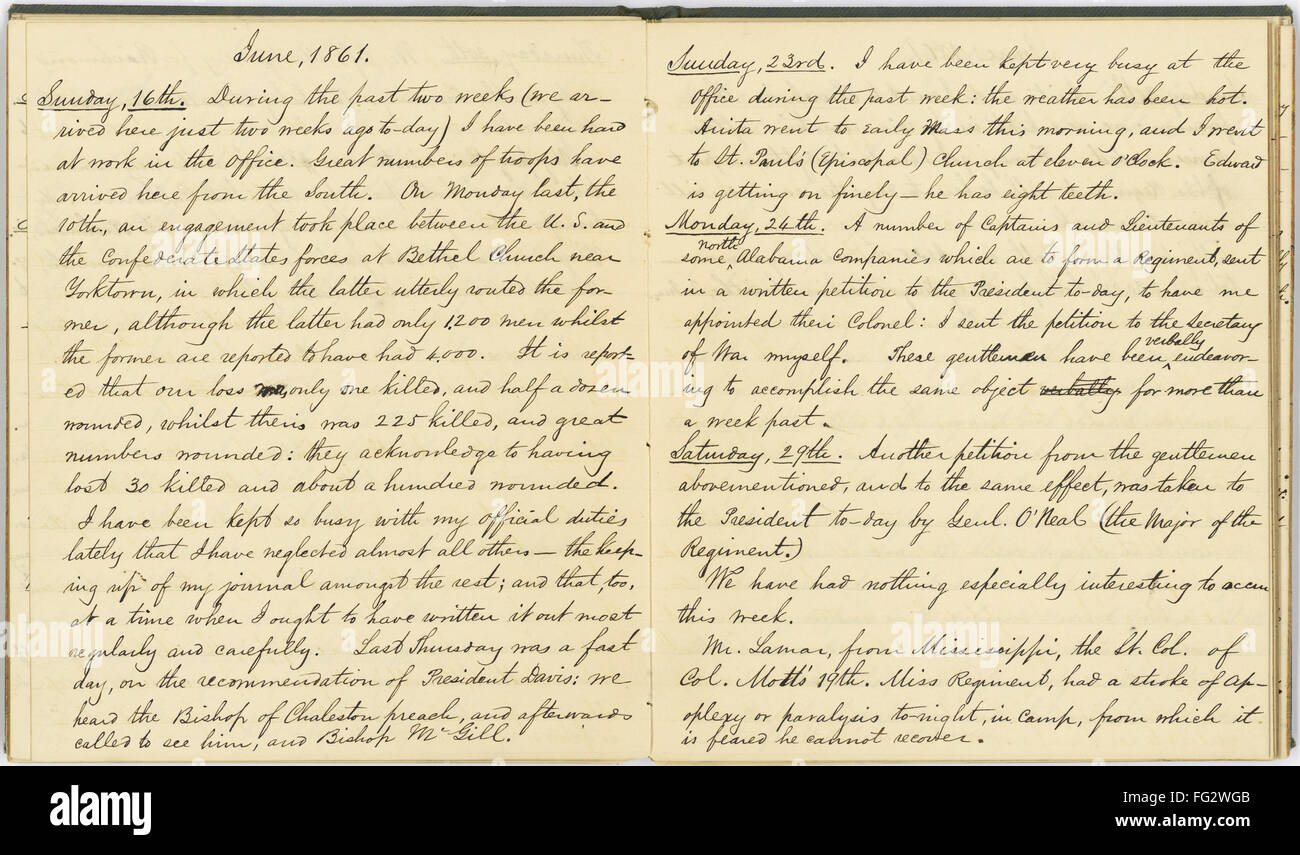 June, 1861.
Sunday, 16th. During the past two weeks (we ar-
rived here just two weeks ago to-day) I have been hard
at work in the office. Great numbers of troops have
arrived here from the South. On Monday last, the
10th., an engagement took place between the U. S. and
the Confederate States forces at Bethel Church near
Yorktown, in which the latter utterly routed the for-
mer, although the latter had only 1,200 men whilst
the former are reported to have had 4,000. It is report-
ed that our loss was only one killed, and half a dozen
wounded, whilst theirs was 225 killed, and great
numbers wounded: they acknowledge to having
lost 30 killed and about a hundred wounded.
I have been kept so busy with my official duties
lately that I have neglected almost all others — the keep-
ing up of my journal amongst the rest; and that, too,
at a time when I ought to have written it out most
regularly and carefully. Last Thursday was a fast
day, on the recommendation of President Davis: we
heard the Bishop of Chaleston preach, and afterwards
called to see him, and Bishop McGill.
Sunday, 23rd. I have been kept very busy at the
office during the past week: the weather has been hot.
Anita went to Early Mass this morning, and I went
to St. Paul's (Episcopal) Church at eleven O'Clock. Edward
is getting on finely — he has eight teeth.
Monday, 24th. A number of Captains and Lieutenants of
some north Alabama Companies which are to form a Regiment, sent
in a written petition to the President to-day, to have me
appointed their Colonel: I sent the petition to the Secretary
of War myself. These gentlemen have been verbally endeavor-
ing to accomplish the same object verbally for more than
a week past.
Saturday, 29th. Another petition from the gentlemen
abovementioned, and to the same effect, was taken to
the President to-day by Genl. O'Neal (the Major of the
Regiment.)
We have had nothing especially interesting to occur
this week.
Mr. Lamar, from Mississippi, the Lt. Col. of
Col. Mott's 19th. Miss Regiment, had a stroke of ap-
oplexy or paralysis to-night, in camp, from which it
is feared he cannot recover.
alamy
FG2WGB
www.alamy.com